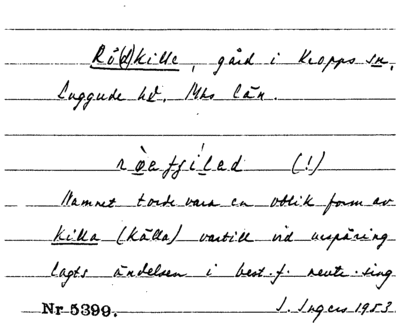 Rå(d)kille, gård i Kropps sn,
Luggude hd. Mhs län.
(!)
Namnet torde vara en oblik form av
Killa (Källa) vartill vid uppäring
lagts ändelsen i best. f. neutr. sing
Nr 5399.
I. Ingers 1953